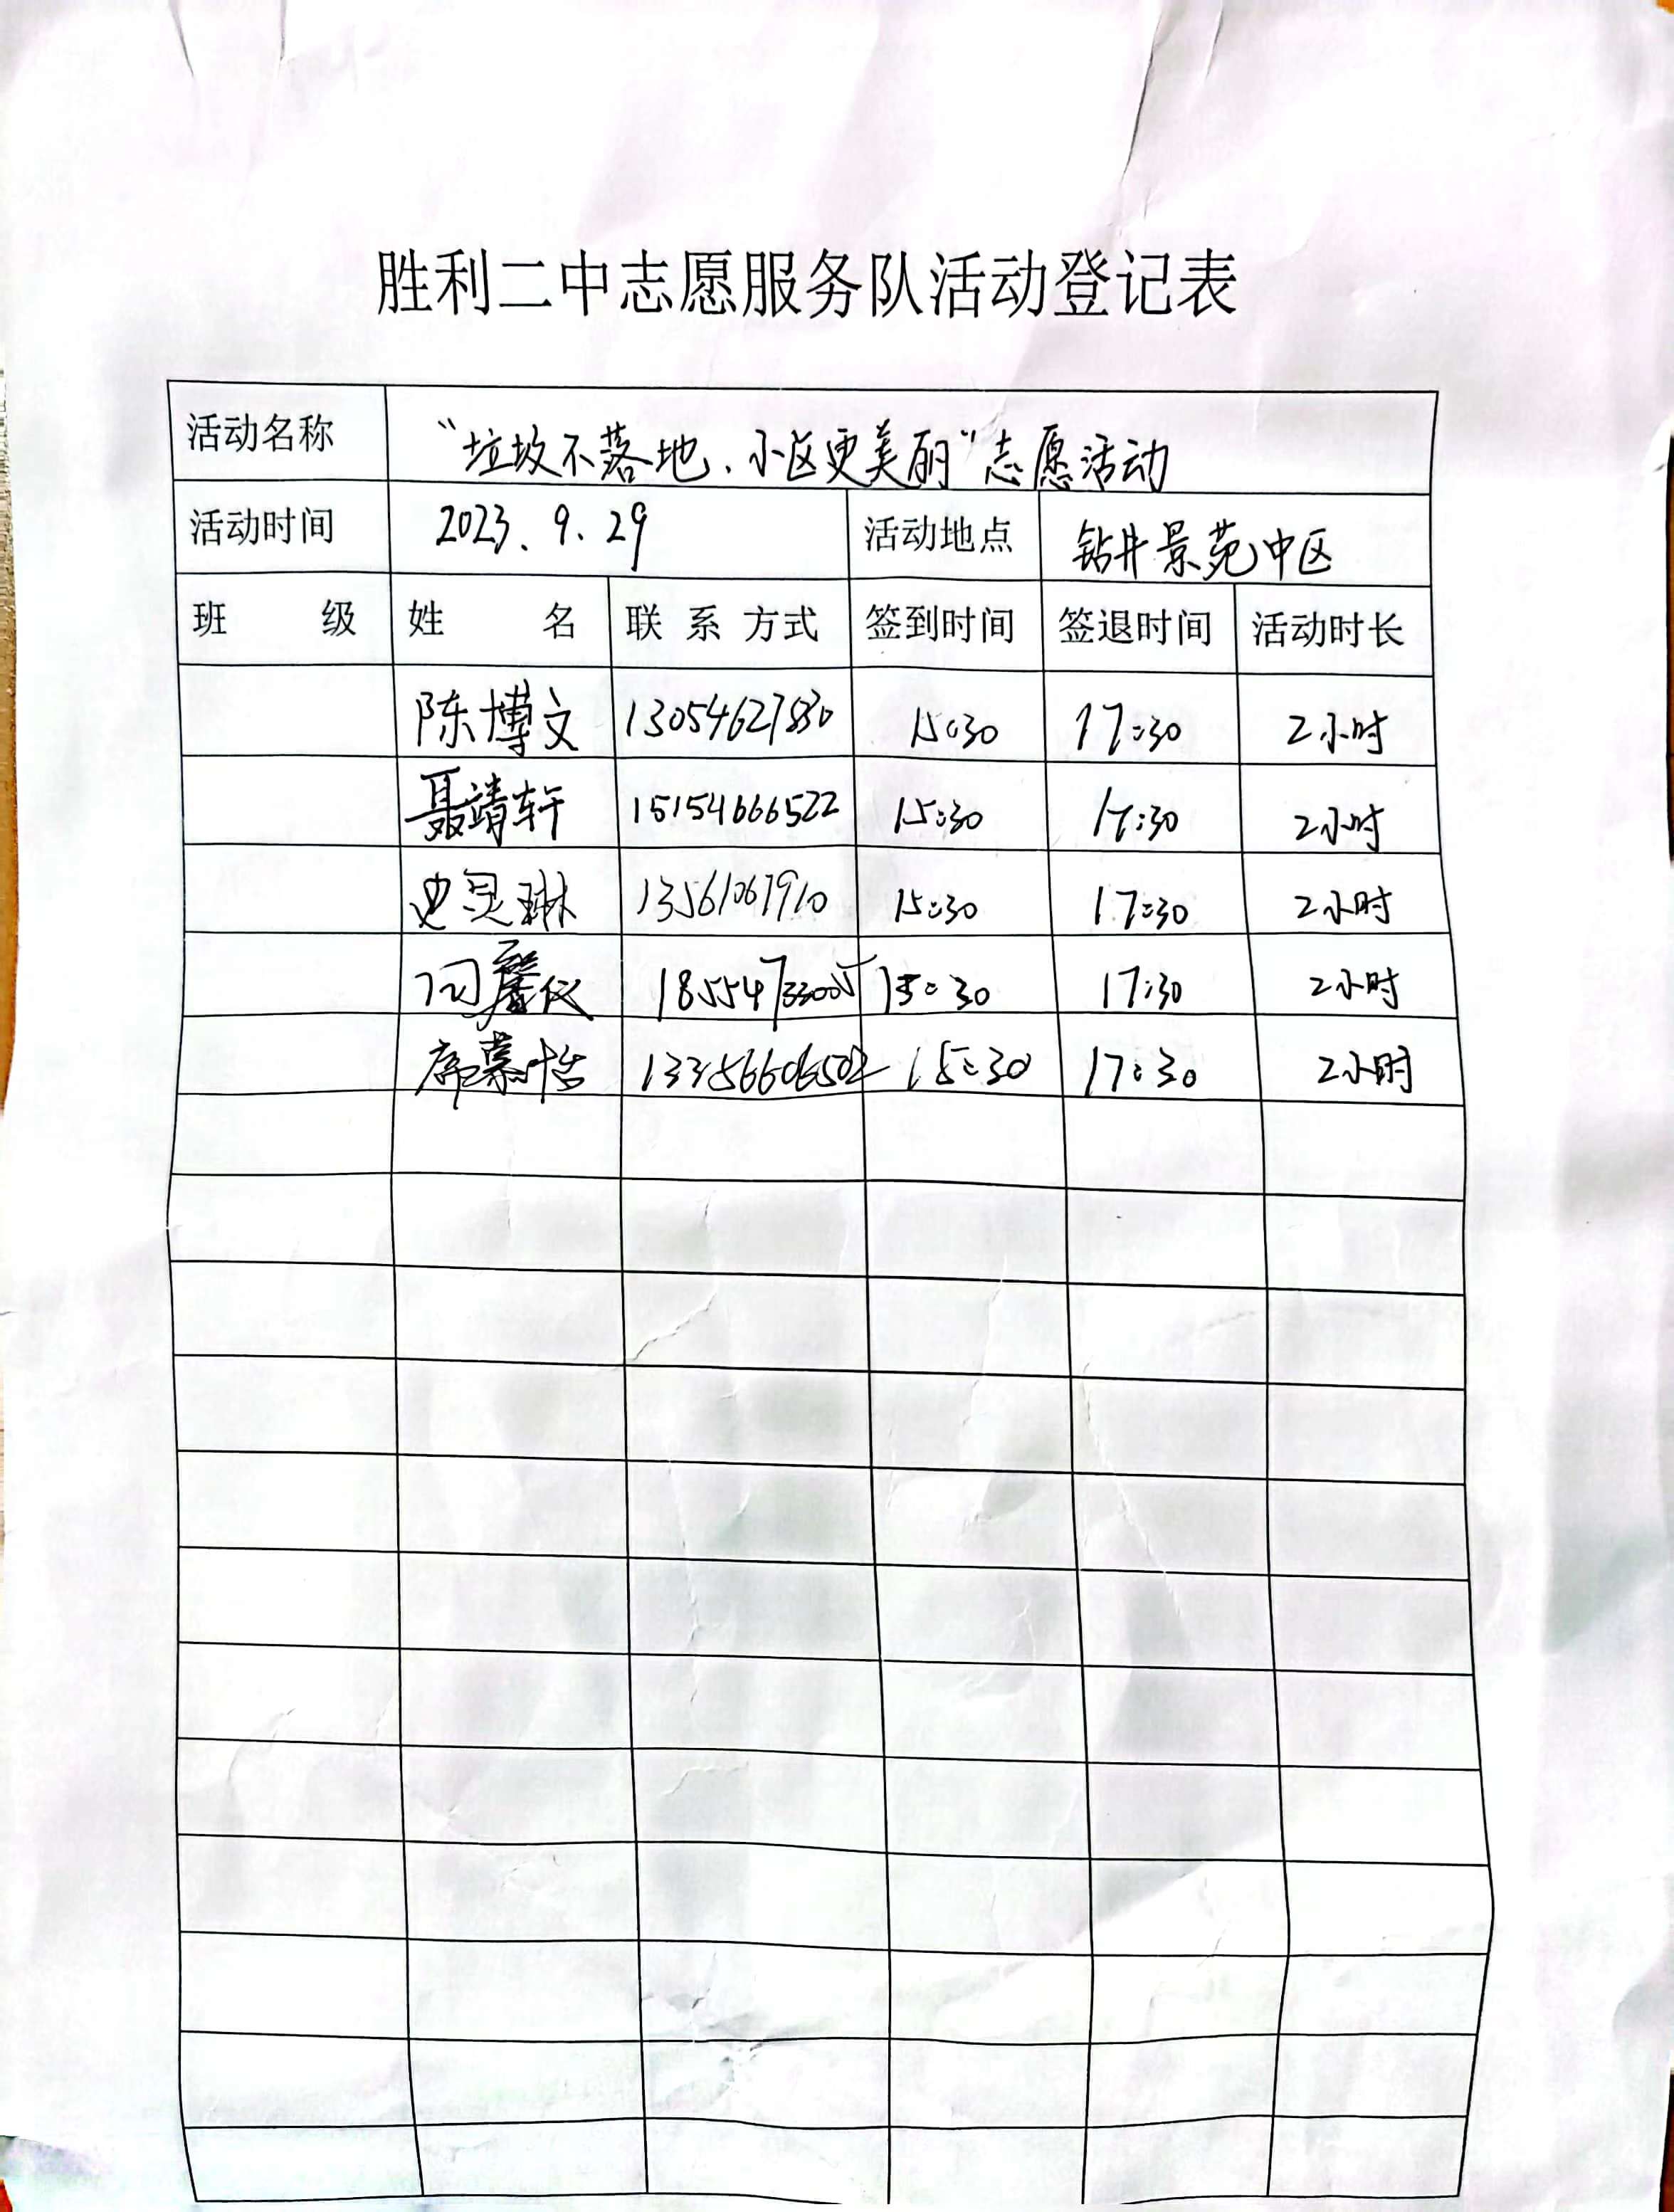 胜利二中志愿服务队活动登记表
活动名称 “垃圾不落地、小区更美丽”志愿活动
活动时间 2023.9.29 活动地点 钻井景苑中区
班 级 姓 名 联 系 方式 签到时间 签退时间 活动时长
陈博文 13054627830 15:30 17:30 2小时
聂靖轩 15154666522 15:30 17:30 2小时
史灵琳 13561067910 15:30 17:30 2小时
闫馨仪 18554733005 15:30 17:30 2小时
席慕恬 13356606502 15:30 17:30 2小时